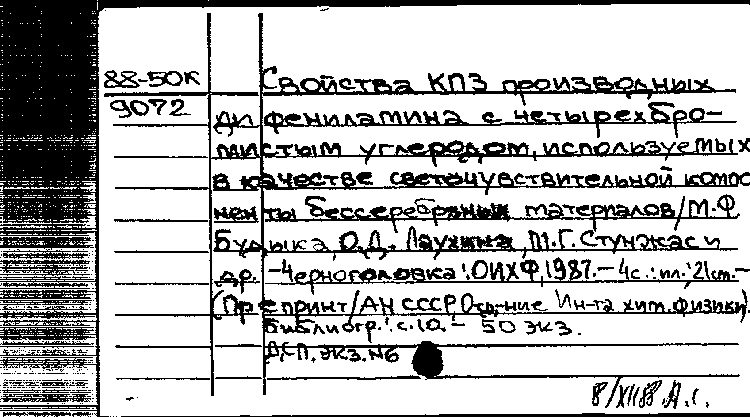 88-50К
9072
Свойства КПЗ производных
дифениламина с четырехбро-
мистым углеродом, используемых
в качестве светочувствительной компо
ненты бессеребряных материалов/М.Ф.
Будыка, О.Д. Лаухина, М.Г. Стунжас и
др. -Черноголовка: ОИХФ, 1987.- 4с.: ил.; 21см.-
(Препринт/АН СССР, Отд-ние Ин-та хим. физики).
Библиогр.: с.10.- 50 экз.
ДСП. экз. №6
8/XII88